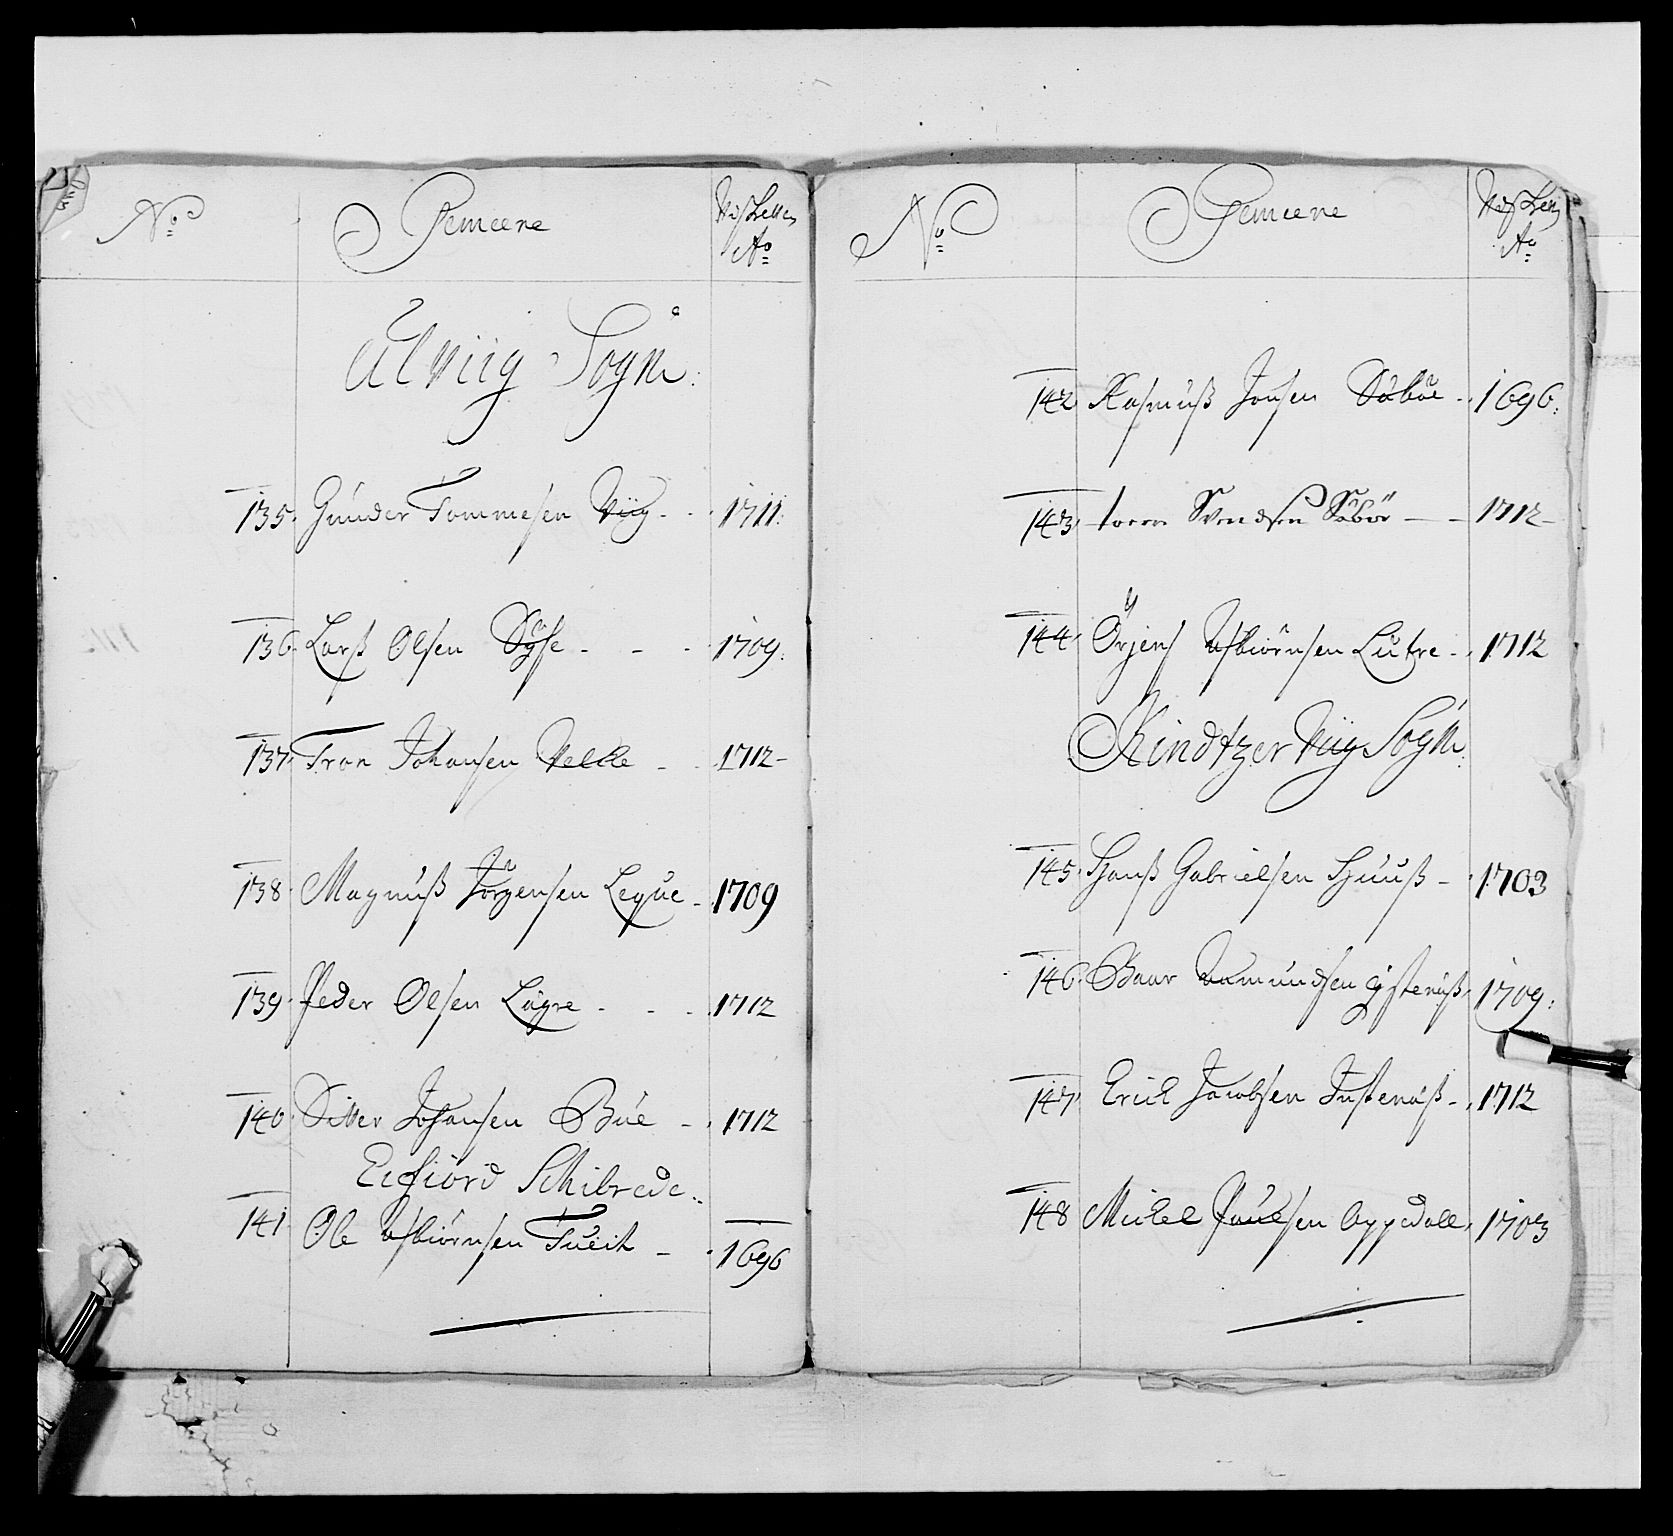 No
Gemeene
Ao
Ulviig Sogn:
135. Gunder Tommesen Viig - 1711:
136. Larß Olsen Sÿse - - - 1709:
137. Tron Johansen Velle - - 1712 -
138. Magnuß Jörgensen Leque - 1709
139. Peder Olsen Lägre - - - 1712
140. Sitter Johansen Büe - - 1712
Eifiord Schibrede:
141 Ole Asbiörnsen Tueit - - 1696
No
Gemeene
Ao
142. Rasmuß Jonsen Säbüe - 1696:
143. Svendsen Säböe - - 1712 -
144. Örjens Asbiörnsen Lütre - 1712
Kindtzer Viig Sogn:
145. Hanß Gabrielsen Huuß - 1703
146. Baar Aamundsen Ystenäß, 1709:
147. Erich Jacobsen Tustenäß - 1712
148 Michel Paulsen Oppedall, 1703